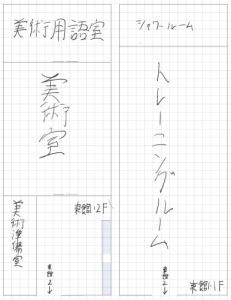 美術用語室
美術室
美術準備室
東館2F
東館2↓
シャワールーム
トレーニングルーム
東館2↓
東館1F